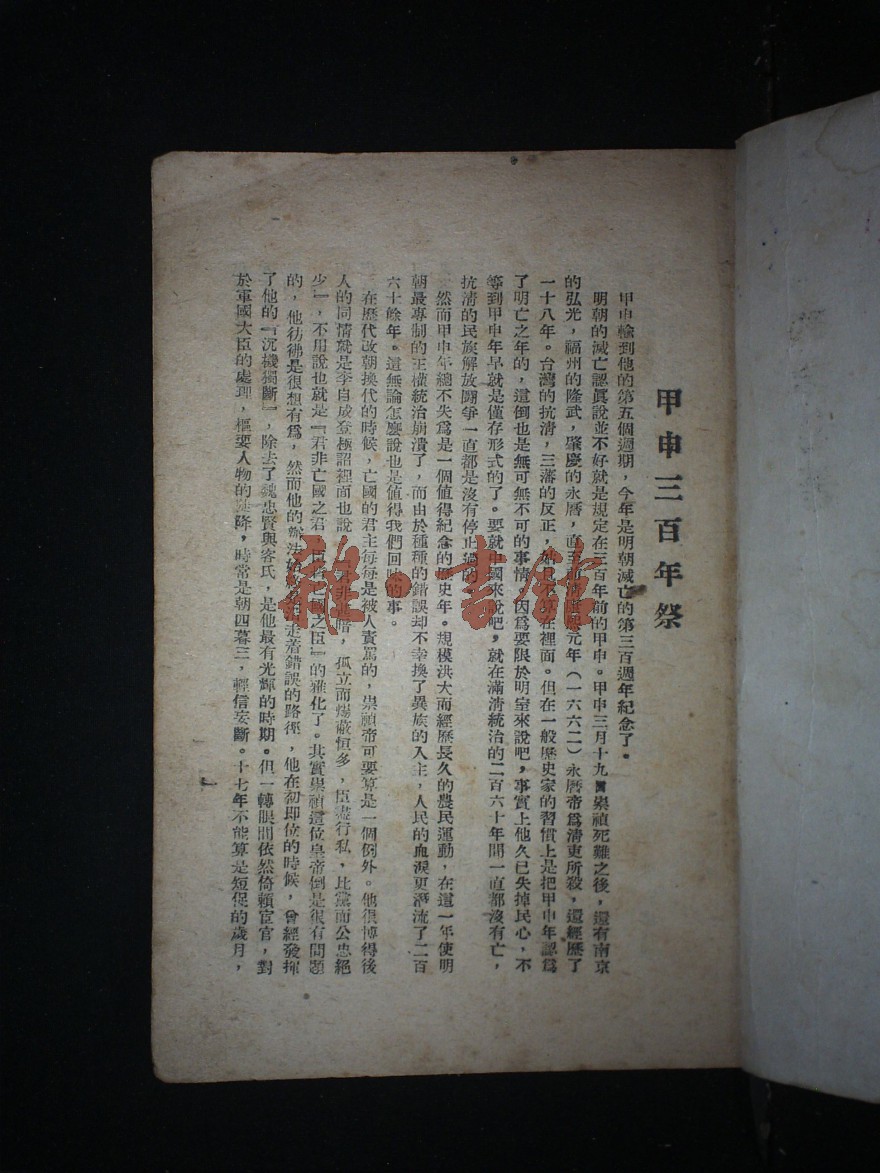 甲申三百年祭
甲申輪到他的第五個週期，今年是明朝滅亡的第三百週年紀念了。
明朝的滅亡認眞說並不好就是規定在三百年前的甲申。甲申三月十九日崇禎死難之後，還有南京
的弘光，福州的隆武，肇慶的永曆，直至 元年（一六六二）永曆帝爲淸吏所殺，還經歷了
一十八年。台灣的抗淸，三藩的反正， 在裡面。但在一般歷史家的習慣上是把甲申年認爲
了明亡之年的，這倒也是無可無不可的事情。因爲要限於明室來說吧，事實上他久已失掉民心，不
等到甲申年早就是僅存形式的了。要就中國來說吧，就在滿淸統治的二百六十年間一直都沒有亡，
抗淸的民族解放鬪爭一直都是沒有停止過的
然而甲申年總不失爲是一個値得紀念的歷史年。規模洪大而經歷長久的農民運動，在這一年使明
朝最專制的王權統治崩潰了，而由於種種的錯誤却不幸換了異族的入主，人民的血淚更潛流了二百
六十餘年。這無論怎麽說也是値得我們回味的事。
在歷代改朝換代的時候，亡國的君主每每是被人責駡的，崇禎帝可要算是一個例外。他很博得後
人的同情就是李自成登極詔裡面也說 君非甚暗，孤立而煬蔽恒多，臣盡行私，比黨而公忠絕
少』，不用說也就是『君非亡國之君，臣皆亡國之臣』的雅化了。其實崇禎這位皇帝倒是很有問題
的，他彷彿是很想有爲，然而他的辦法 走着錯誤的路徑，他在初卽位的時候，曾經發揮
了他的『沉機獨斷』，除去了魏忠賢與客氏，是他最有光輝的時期。但一轉眼間依然倚賴宦官，對
於軍國大臣的處理，樞要人物的陞降，時常是朝四暮三，輕信妄斷。十七年不能算是短促的歲月，
雜·書館